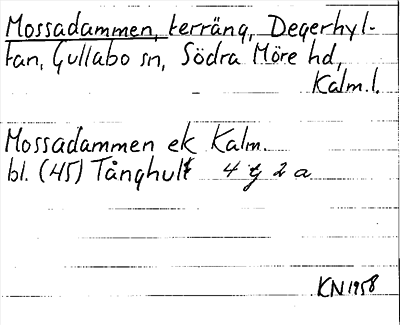 Mossadammen, terräng, Degerhyl-
tan, Gullabo sn, Södra Möre hd,
Kalm. l.
Mossadammen ek Kalm.
bl. (45) Tånghult 4 g 2 a
KN 1958